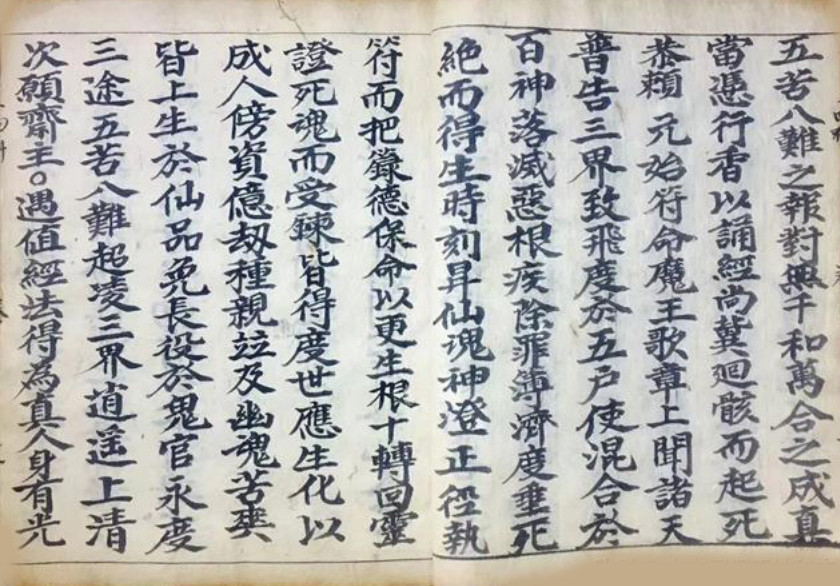 五苦八難之報對無千和萬合之成真
當憑行香以誦經尚冀廻骸而起死
恭賴　元始符命魔王歌章上聞諸天
普告三界致飛度於五戶使混合於
百神落滅惡根疾除罪簿濟度垂死
絕而得生時刻昇仙魂神澄正徑執
符而把籙德保命以更生根十轉回靈
證死魂而受鍊皆得度世應生化以
成人傍資億劫種親竝及幽魂苦爽
皆上生於仙品免長役於鬼官永度
三途五苦八難起凌三界逍遥上清
次願齋主。遇值經法得為真人身有光